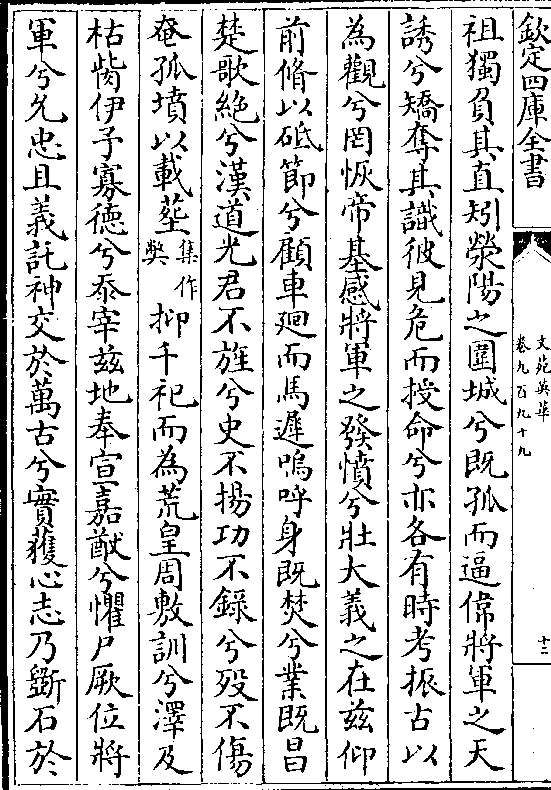 欽定四庫全書
文苑英華
卷九百九十九
十三
祖獨負其直矧滎陽之圍城兮既孤而逼偉將軍之天
誘兮矯奪其識彼見危而授命兮亦各有時考振古以
為觀兮罔恢帝基感將軍之發憤兮壯大義之在兹仰
前脩以砥節兮顧車廻而馬遲嗚呼身既焚兮業既昌
楚歌絶兮漢道光君不旌兮史不揚功不錄兮殁不傷
奄孤墳以載塟集作弊抑千祀而為荒皇周敷訓兮澤及
枯胔伊予寡徳兮忝宰兹地奉宣嘉猷兮懼尸厥位將
軍兮允忠且義託神交於萬古兮實獲心志乃斵石於